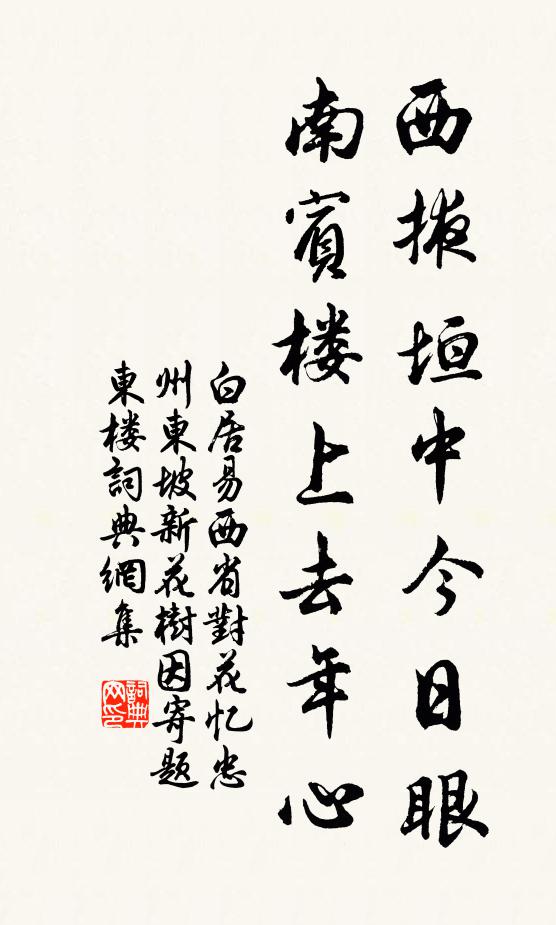 西掖垣中今日眼
南賓楼上去年心
白居易西省對花忆忠
州東坡新花樹因寄题
東楼詞典網集
詞典
网印